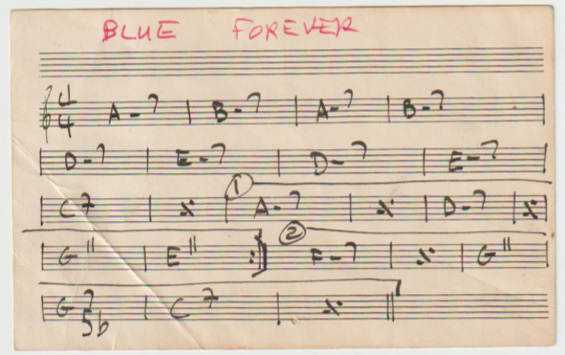 BLUE FOREVER
4/4 A-7 B-7 A-7 B-7
D-7 E-7 D-7 E-7
C7 𝄎 1 A-7 𝄎 D-7 𝄎
G11 E11 2 F-7 𝄎 G11
G7 5b C7 𝄎